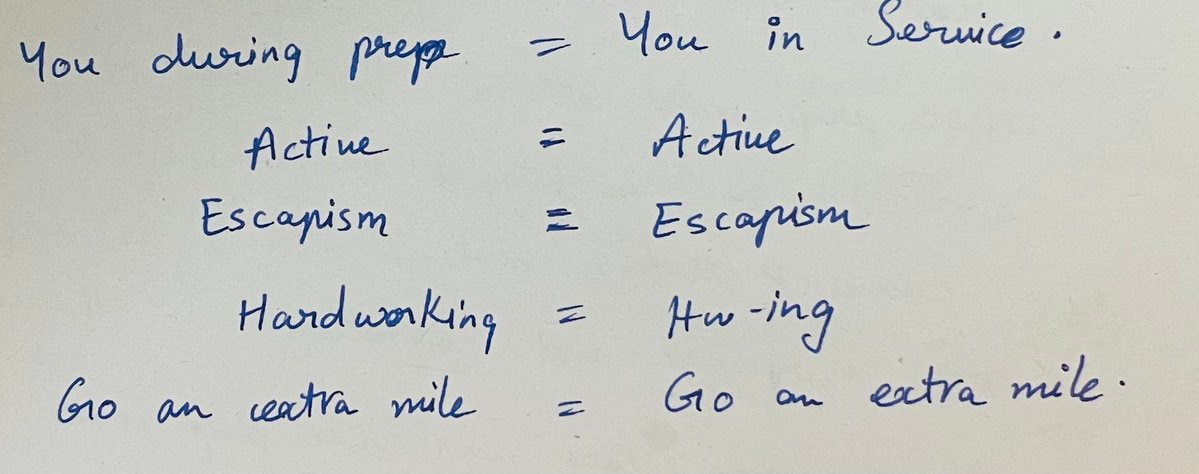 You during prep = You in Service.
Active = Active
Escapism = Escapism
Hardworking = Hw-ing
Go an extra mile = Go an extra mile.